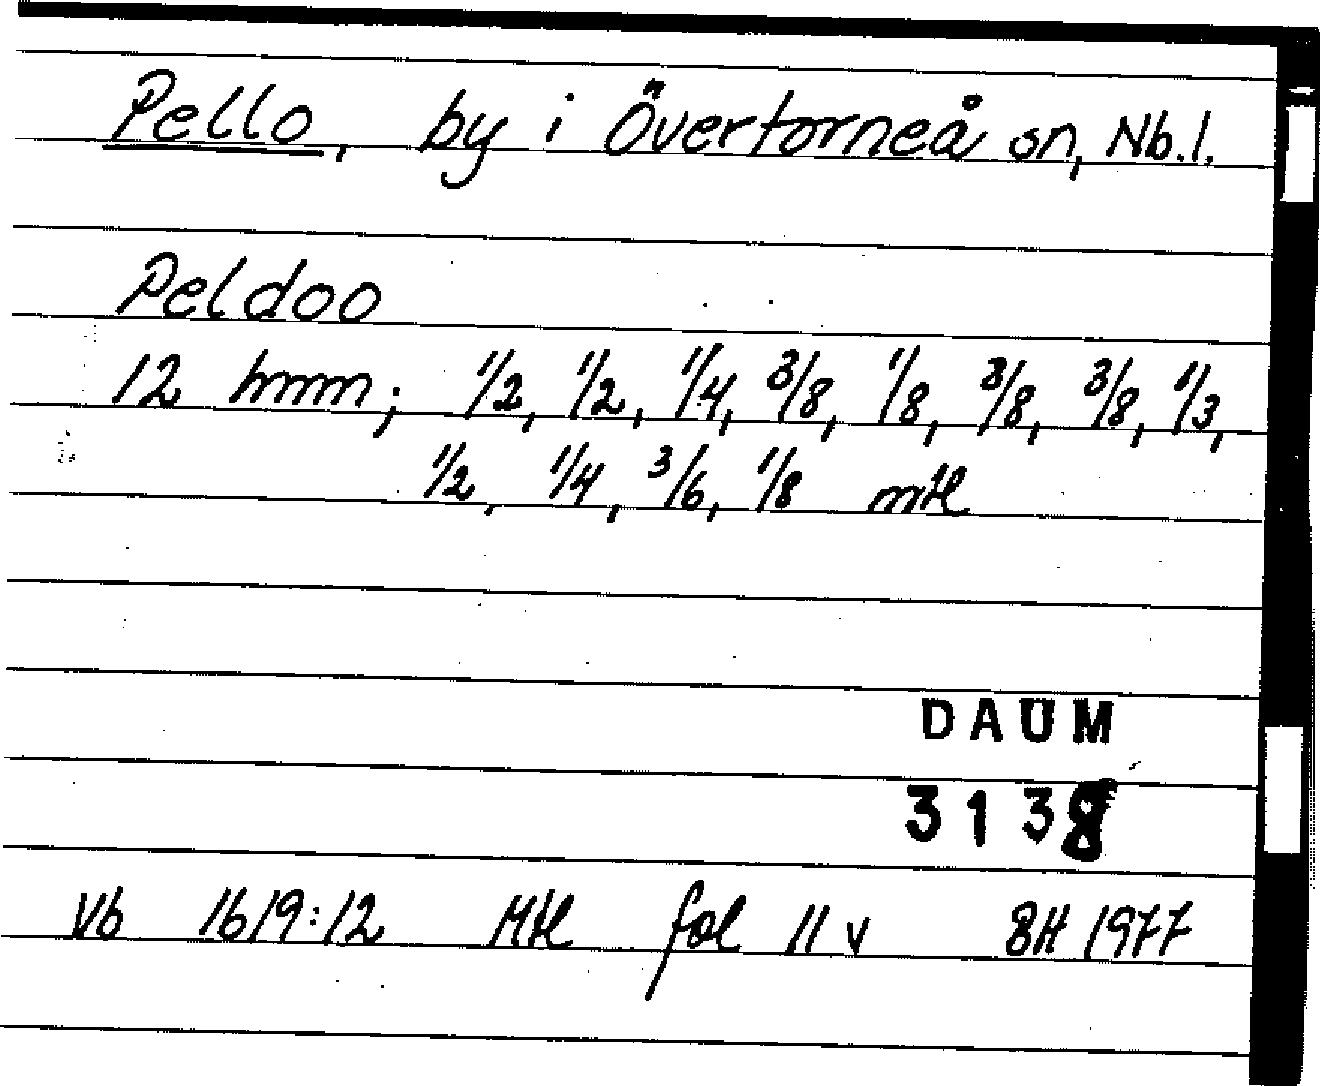 Pello, by i Övertorneå sn, Nb.l.
Peldoo
12 hmm; 1/2, 1/2, 1/4, 3/8, 1/8, 3/8, 3/8, 1/3,
1/2, 1/4, 3/6, 1/8 mtl
DAUM
3138
Vb 1619:12 Mtl fol 11 v BH 1977